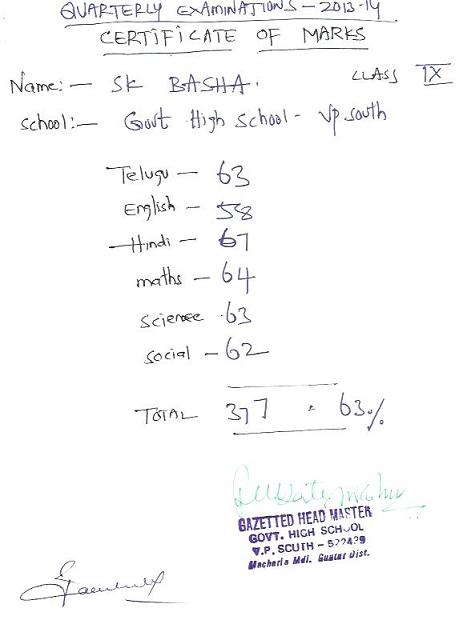 QUARTERLY EXAMINATIONS - 2013-14
CERTIFICATE OF MARKS
Name:- SK BASHA. CLASS IX
School:- Govt High School - VP South
Telugu - 63
English - 58
Hindi - 67
maths - 64
science 63
social - 62
TOTAL 377 . 63%
GAZETTED HEAD MASTER
GOVT. HIGH SCHOOL
V.P. SOUTH - 522439
Macherla Mdl. Guntur Dist.